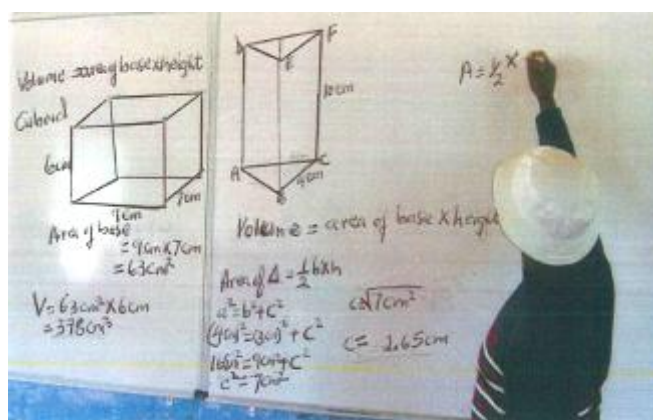 Volume = area of base x height
Cuboid
6cm
7cm
9cm
Area of base
= 9cm x 7cm
= 63cm²
V = 63cm² x 6cm
= 378cm³
D
F
E
10cm
A
C
B
4cm
Volume = area of base x height
Area of Δ = 1/2 b x h
a² = b² + c²
(4cm)² = (3cm)² + c²
16cm² = 9cm² + c²
c² = 7cm²
c √7cm²
c = 2.65cm
A = 1/2 x